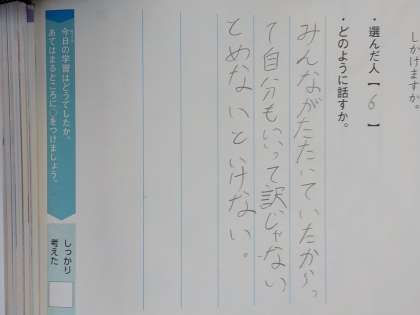 しかけますか。
・選んだ人【 6 】
・どのように話すか。
みんながたたいていたからっ
て自分もいいって訳じゃない
とめないといけない。
今日の学習はどうでしたか。
あてはまるところに○をつけましょう。
しっかり
考えた